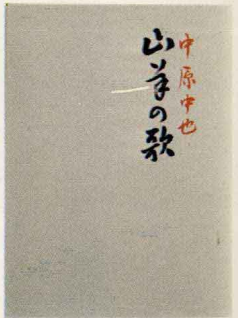 中原中也
山羊の歌